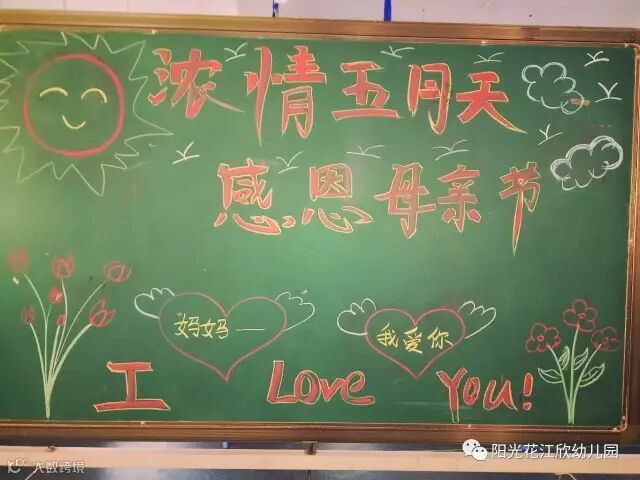 浓情五月天
感恩母亲节
妈妈—
我爱你
I Love You!
阳光花江欣幼儿园
大数跨境